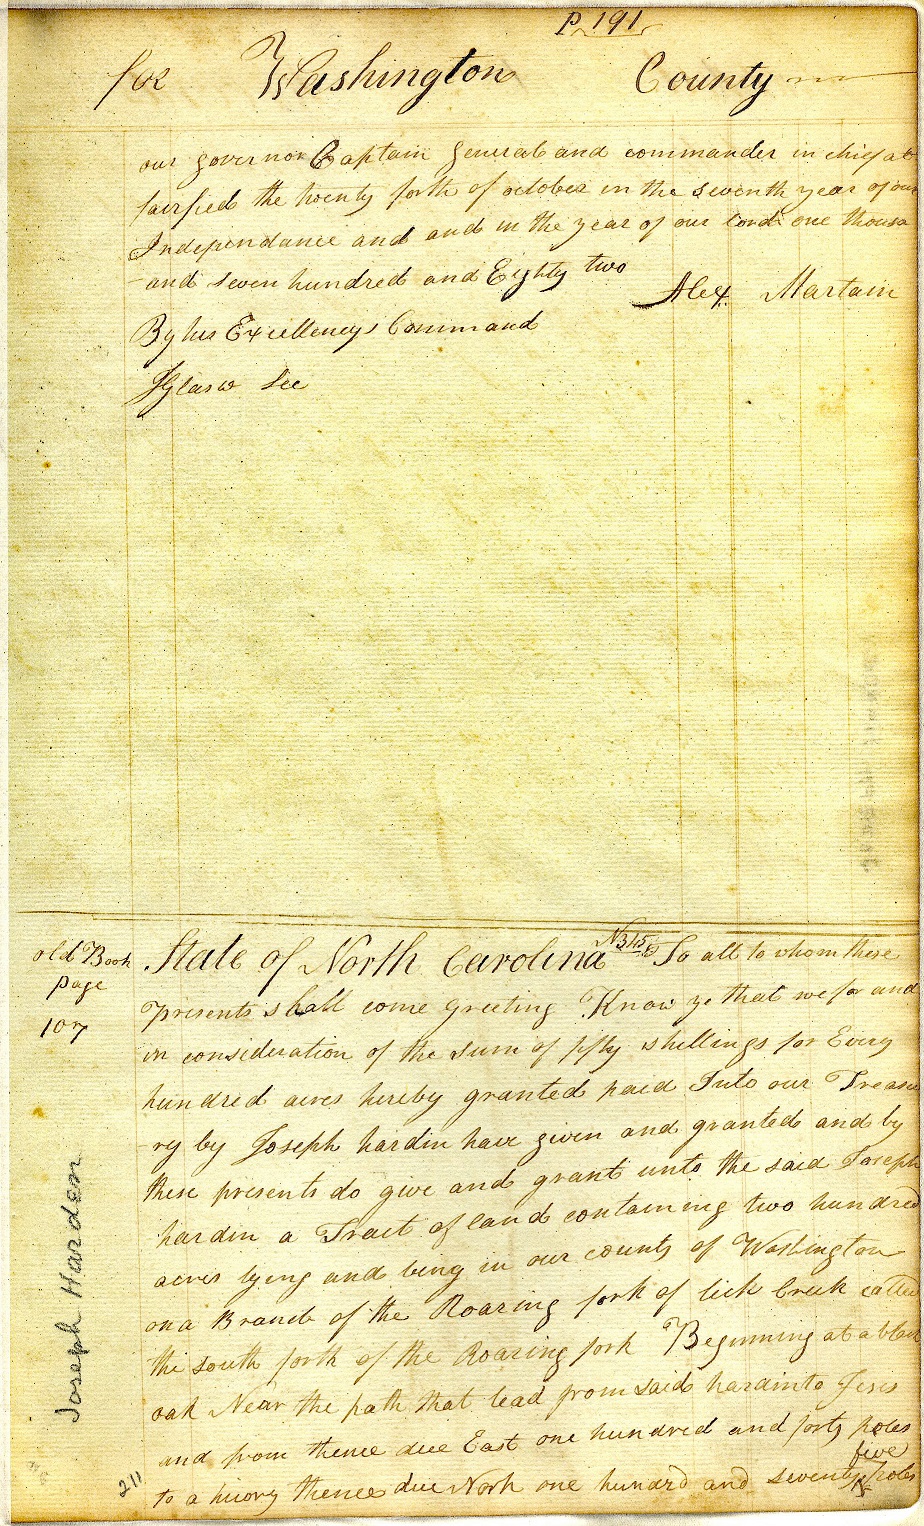 P 191
for Washington County
our governor Captain general and commander in chief at
fairfied the twenty forth of october in the seventh year of our
Independance and and in the year of our Lord one thousa
and seven hundred and Eighty two
Alex Martain
By his Excellencys Command
JGlasw Sec
old Book
page
107
State of North Carolina No 315 To all to whom these
presents shall come greeting Know ye that we for and
in consideration of the sum of fifty shillings for Every
hundred acres hereby granted paid Into our Treasu
ry by Joseph hardin have given and granted and by
these presents do give and grant unto the said Joseph
hardin a Tract of land containing two hundred
acres lying and being in our county of Washington
on a Branch of the Roaring fork of lick Creek called
the south forth of the Roaring fork Beginning at a black
oak Near the path that lead from said hardin to
and from thence due East one hundred and forty poles
to a hicory thence due North one hundrd and seventy five poles
Joseph Harden
211